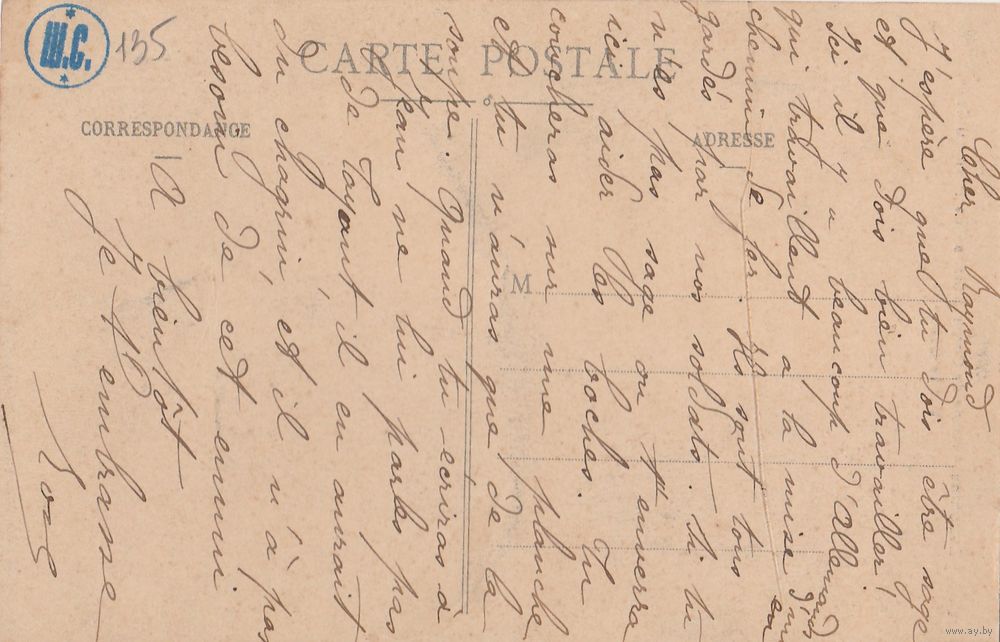 W.C.
135
CARTE POSTALE
CORRESPONDANCE
ADRESSE
M
Cher Raymond
J'espère que tu dois être sage
et que dois bien travailler!
Ici il y a beaucoup d'allemands
qui travaillent à la mise en
chemin de fer. Ils sont tous
gardés par nos soldats. Si tu
n'es pas sage on t'enverra
ici aider les boches. Tu
coucheras sur une planche
et tu n'auras que de la
soupe. Quand tu ecriras à
Jean ne lui parles pas
de Toyant il en aurait
du chagrin, et il n'à pas
besoin de cet ennui.
A bientôt
Je t'embrasse
www.ay.by